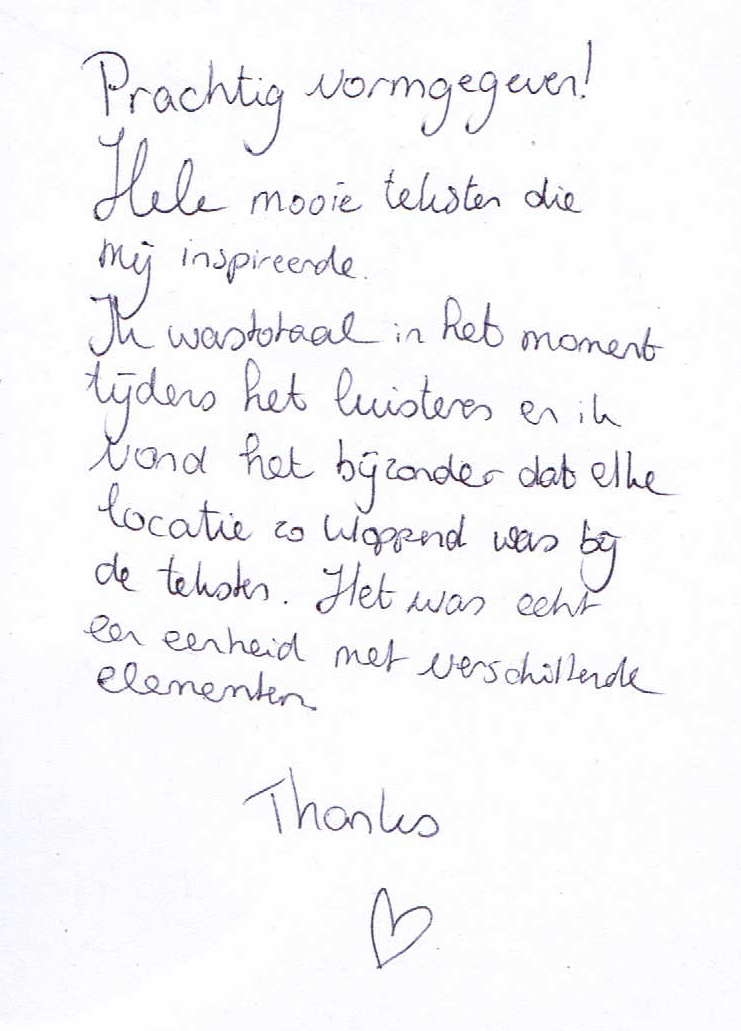 Prachtig vormgegeven!
Hele mooie teksten die
mij inspireerde.
Ik wastotaal in het moment
tijdens het luisteren en ik
vond het bijzonder dat elke
locatie zo kloppend was bij
de teksten. Het was echt
een eenheid met verschillende
elementen
Thanks